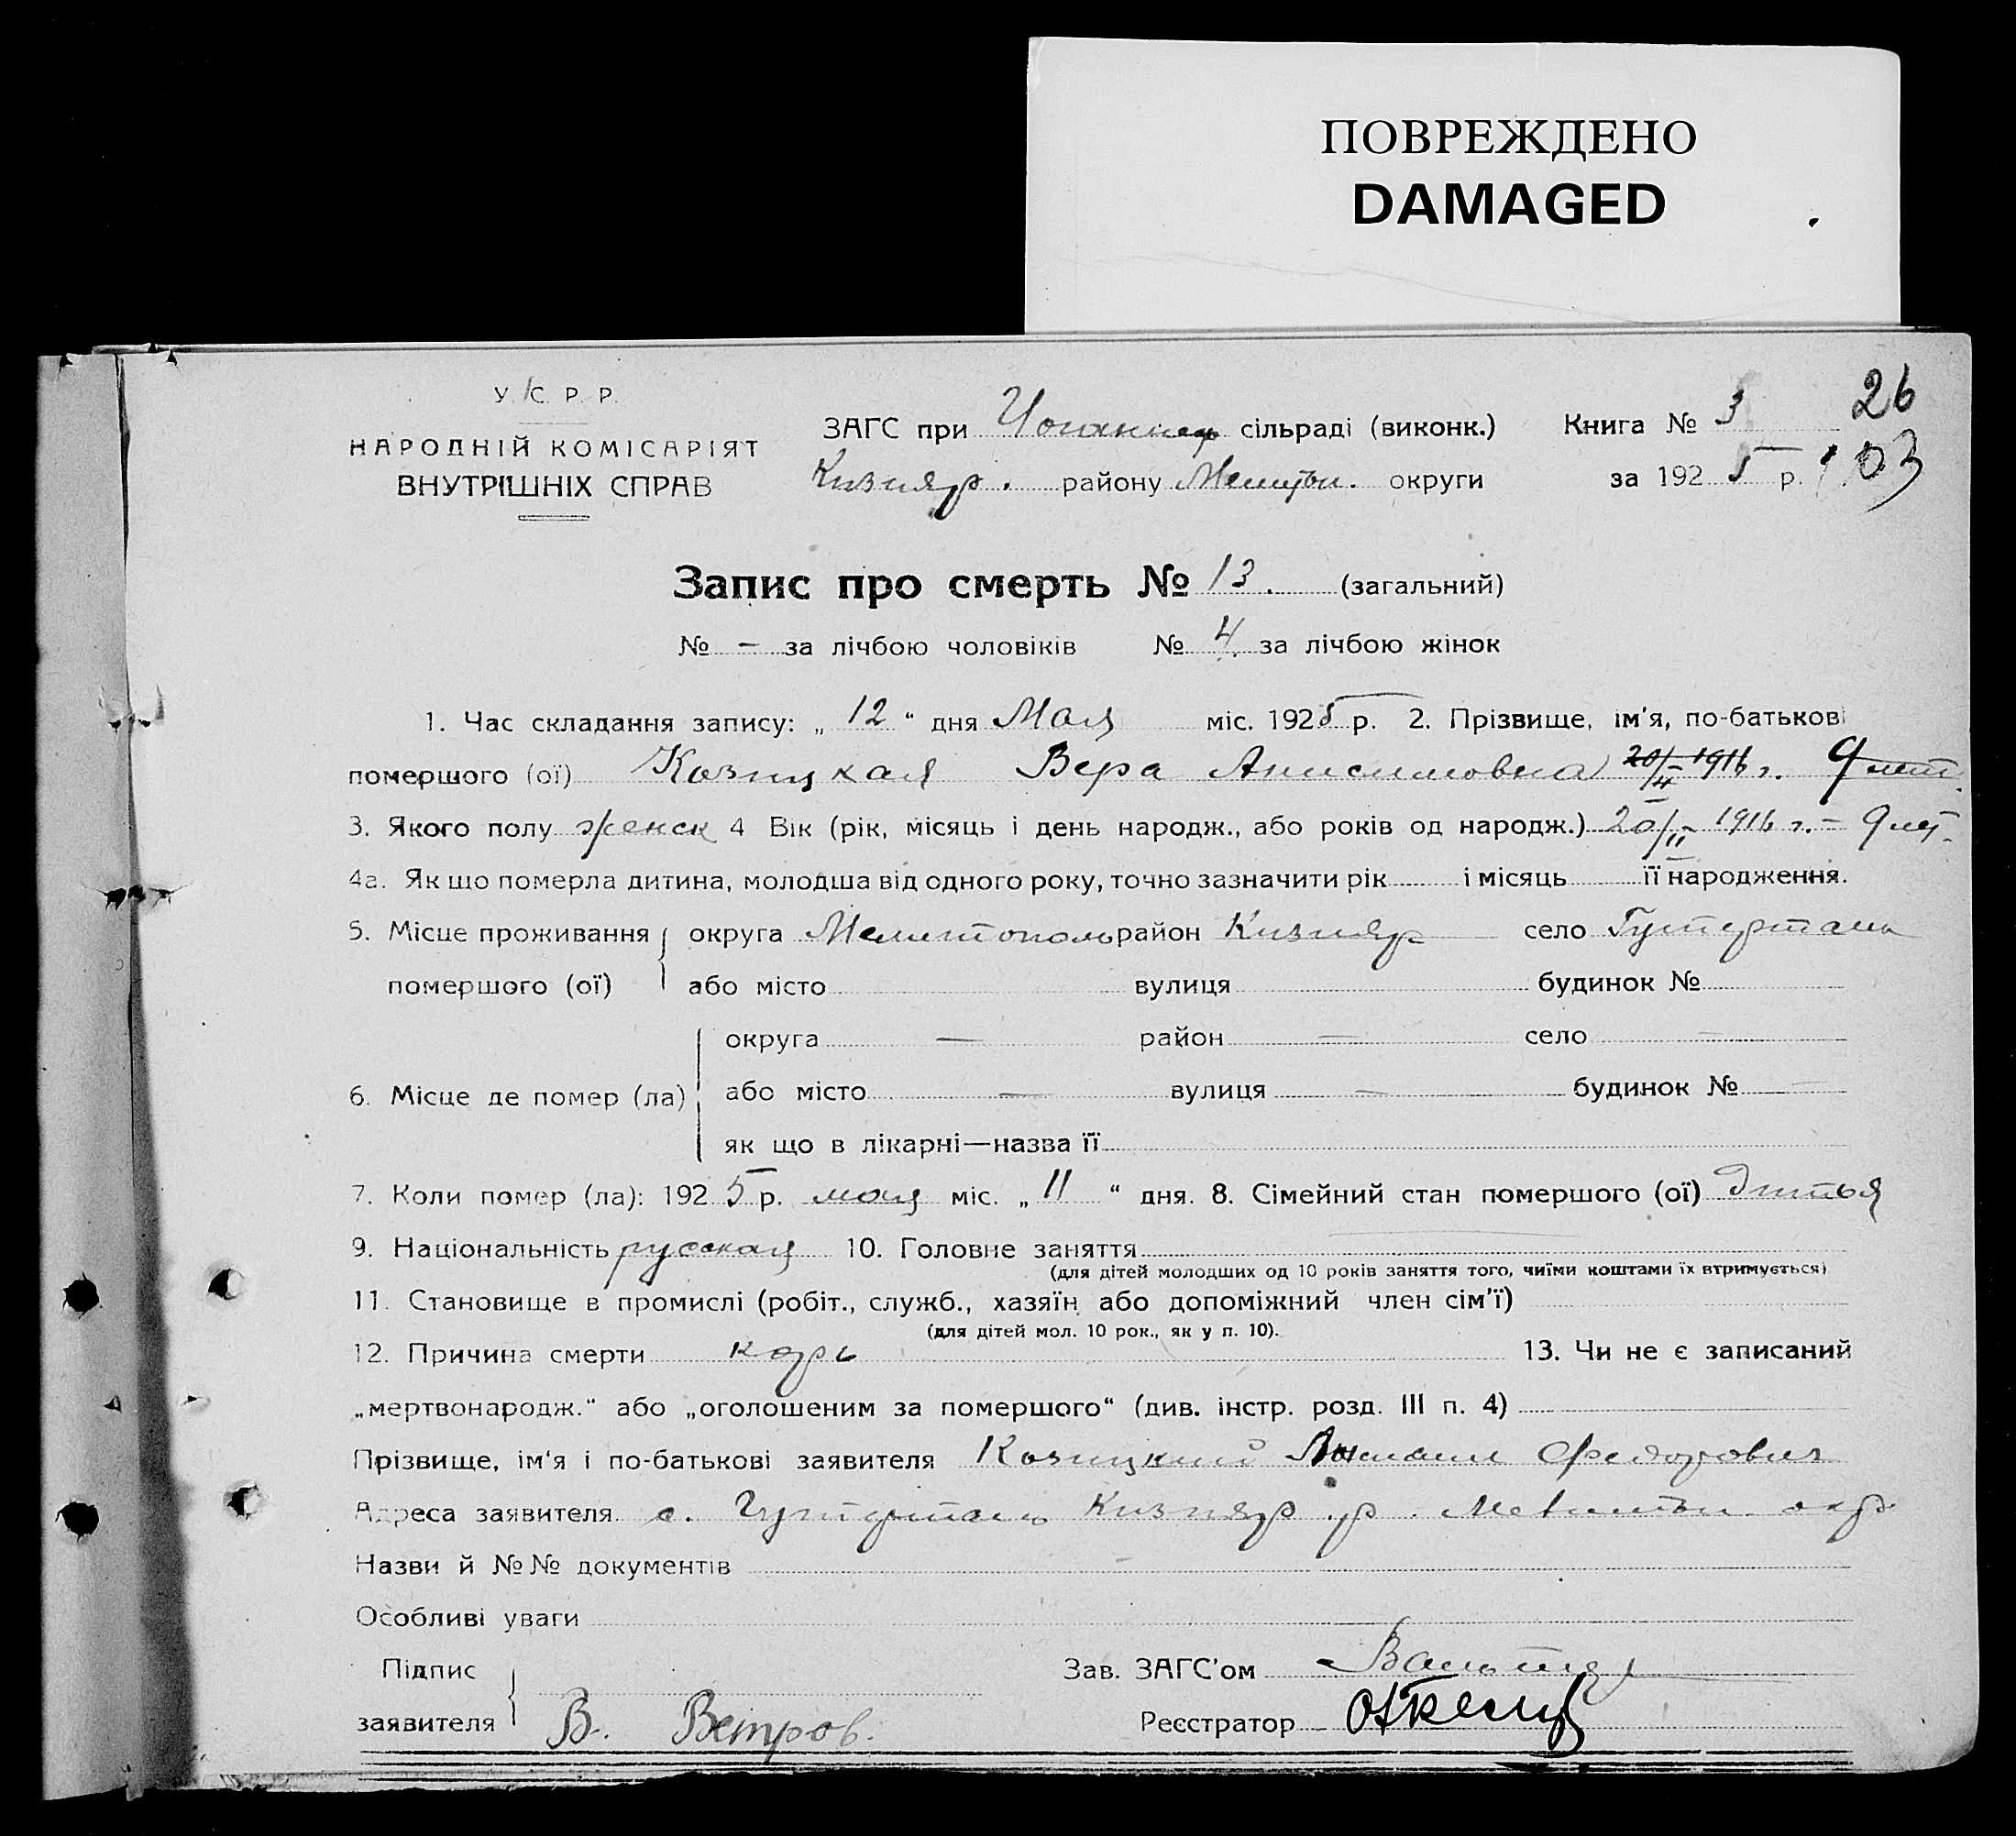 ПОВРЕЖДЕНО
DAMAGED
У. С. Р. Р.
НАРОДНІЙ КОМІСАРІЯТ
ВНУТРІШНІХ СПРАВ
ЗАГС при сільраді (виконк.) Книга № 3 26
Кизияр. району Мелитоп. округи за 1925 р. 103
Запис про смерть № 13. (загальний)
№ – за лічбою чоловіків № 4 за лічбою жінок
1. Час складання запису: „12“ дня Мая міс. 1925 р. 2. Прізвище, ім'я, по-батькові
помершого (ої) Козицкая Вера Анисимовна 20/II 1916 г. 9 лет
3. Якого полу женск 4 Вік (рік, місяць і день народж., або років од народж.) 20/II 1916 г. – 9 лет.
4а. Як що померла дитина, молодша від одного року, точно зазначити рік і місяць її народження.
5. Місце проживання округа Мелитополь район Кизияр село Гутерталь
помершого (ої) або місто вулиця будинок №
округа — район — село —
6. Місце де помер (ла) або місто — вулиця — будинок № —
як що в лікарні—назва її
7. Коли помер (ла): 1925 р. мая міс. „11“ дня. 8. Сімейний стан помершого (ої) дитья
9. Національність русская 10. Головне заняття
(для дітей молодших од 10 років заняття того, чиїми коштами їх втримується)
11. Становище в промислі (робіт., служб., хазяїн або допоміжний член сім'ї)
(для дітей мол. 10 рок., як у п. 10).
12. Причина смерти корь 13. Чи не є записаний
„мертвонародж.“ або „оголошеним за помершого“ (див. інстр. розд. III п. 4)
Прізвище, ім'я і по-батькові заявителя Козицкий Федорович
Адреса заявителя с. Гутерталь Кизияр. р. Мелитоп. окр.
Назви й №№ документів
Особливі уваги
Підпис Зав. ЗАГС'ом Вальтер
заявителя В. Ветров. Реєстратор